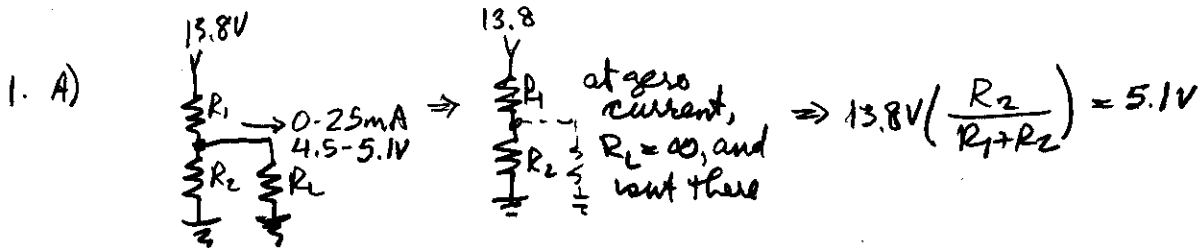 1. A)
13.8V
R₁
→ 0-25mA
4.5-5.1V
R₂
R_L
⇒
13.8
R₁
R₂
at zero
current,
R_L = ∞, and
isn't there
⇒ 13.8V( R₂ / R₁+R₂ ) = 5.1V